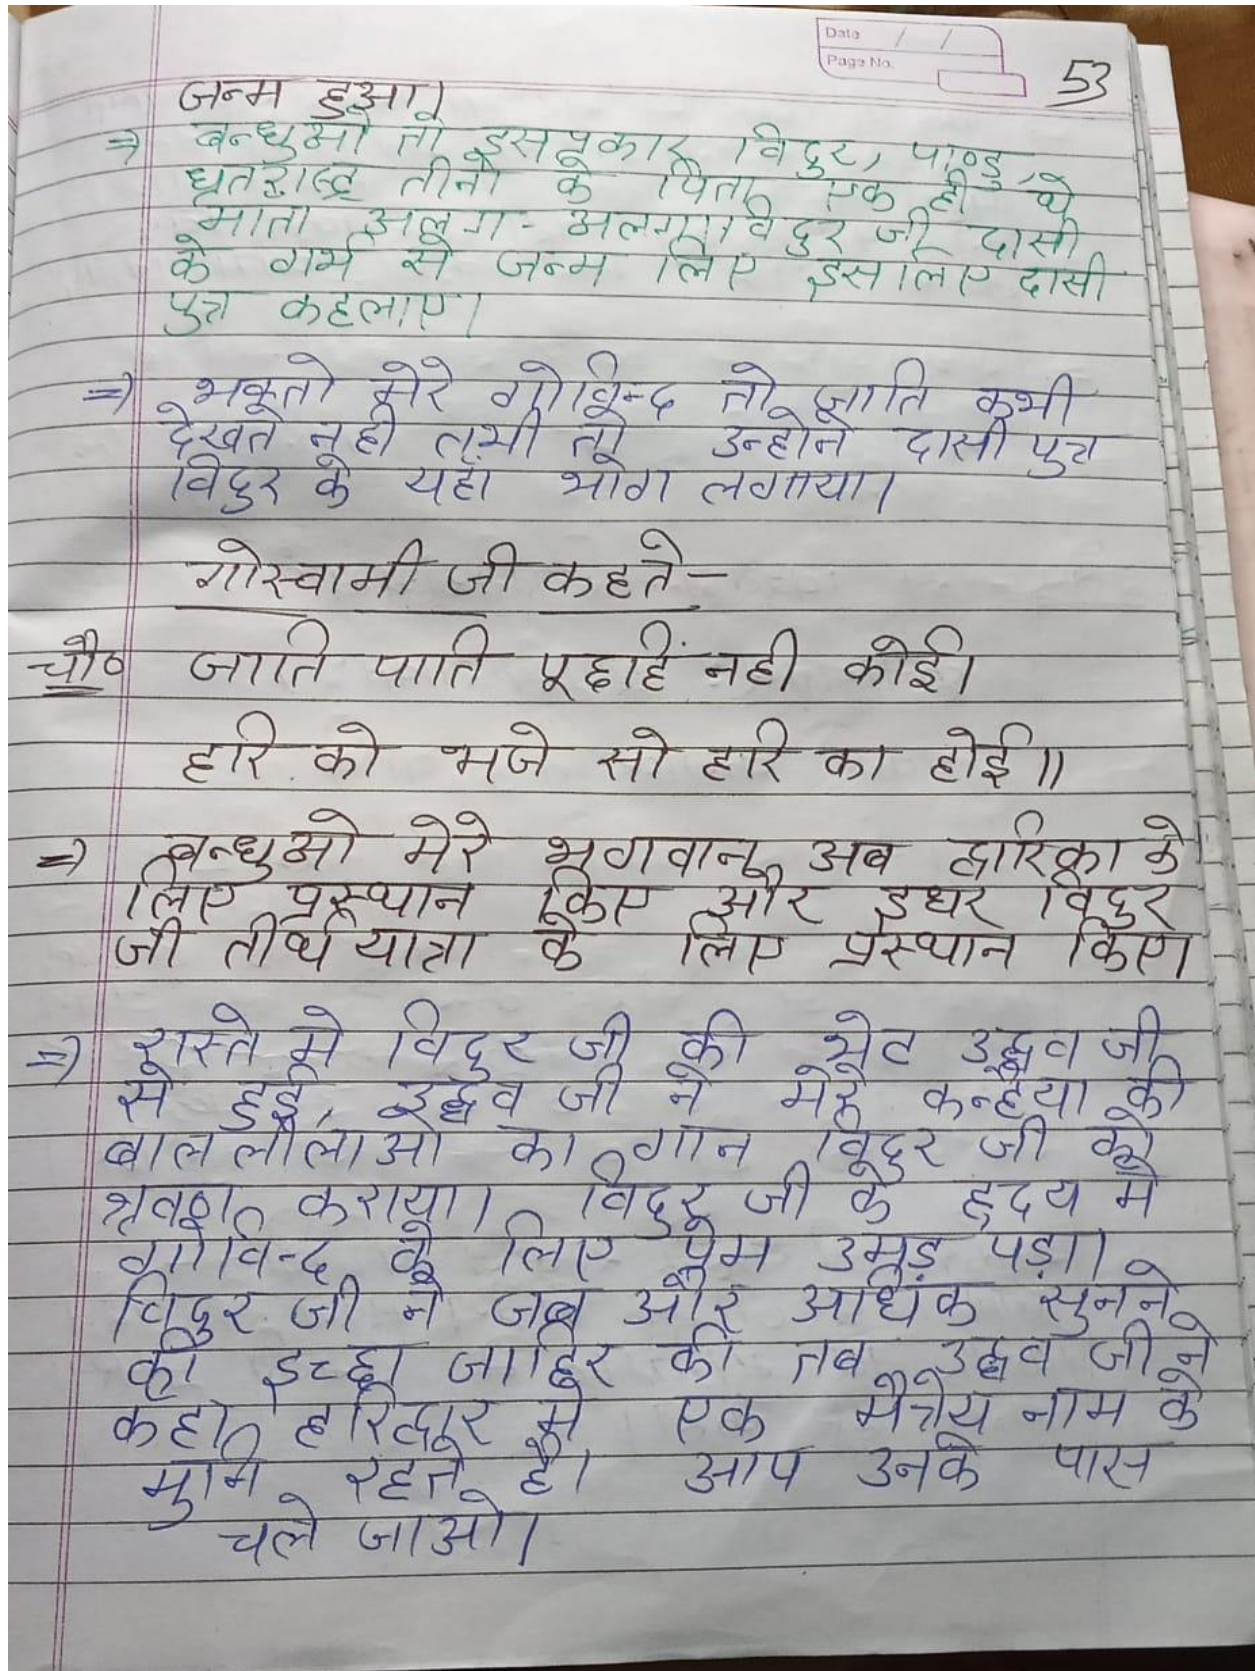 Date / /
Page No.
53
जन्म हुआ।
⇒ बन्धुओ तो इसप्रकार विदुर, पाण्डु,
धृतराष्ट्र तीनो के पिता एक ही थे
माता अलग-अलग। विदुर जी दासी
के गर्भ से जन्म लिए इसलिए दासी
पुत्र कहलाए।
⇒ भक्तो मेरे गोविन्द तो जाति कभी
देखते नही तभी तो उन्होने दासी पुत्र
विदुर के यहाँ भोग लगाया।
गोस्वामी जी कहते-
चौ० जाति पाति पूछहिं नही कोई।
हरि को भजे सो हरि का होई॥
⇒ बन्धुओ मेरे भगवान अब द्वारिका के
लिए प्रस्थान किए और इधर विदुर
जी तीर्थ यात्रा के लिए प्रस्थान किए।
⇒ रास्ते मे विदुर जी की भेट उद्धव जी
से हुई, उद्धव जी ने मेरे कन्हैया की
बाललीलाओ का गान विदुर जी को
श्रवण कराया। विदुर जी के हृदय मे
गोविन्द के लिए प्रेम उमड़ पड़ा।
विदुर जी ने जब और अधिक सुनने
की इच्छा जाहिर की तब उद्धव जी ने
कहा हरिद्वार मे एक मैत्रेय नाम के
मुनि रहते है। आप उनके पास
चले जाओ।